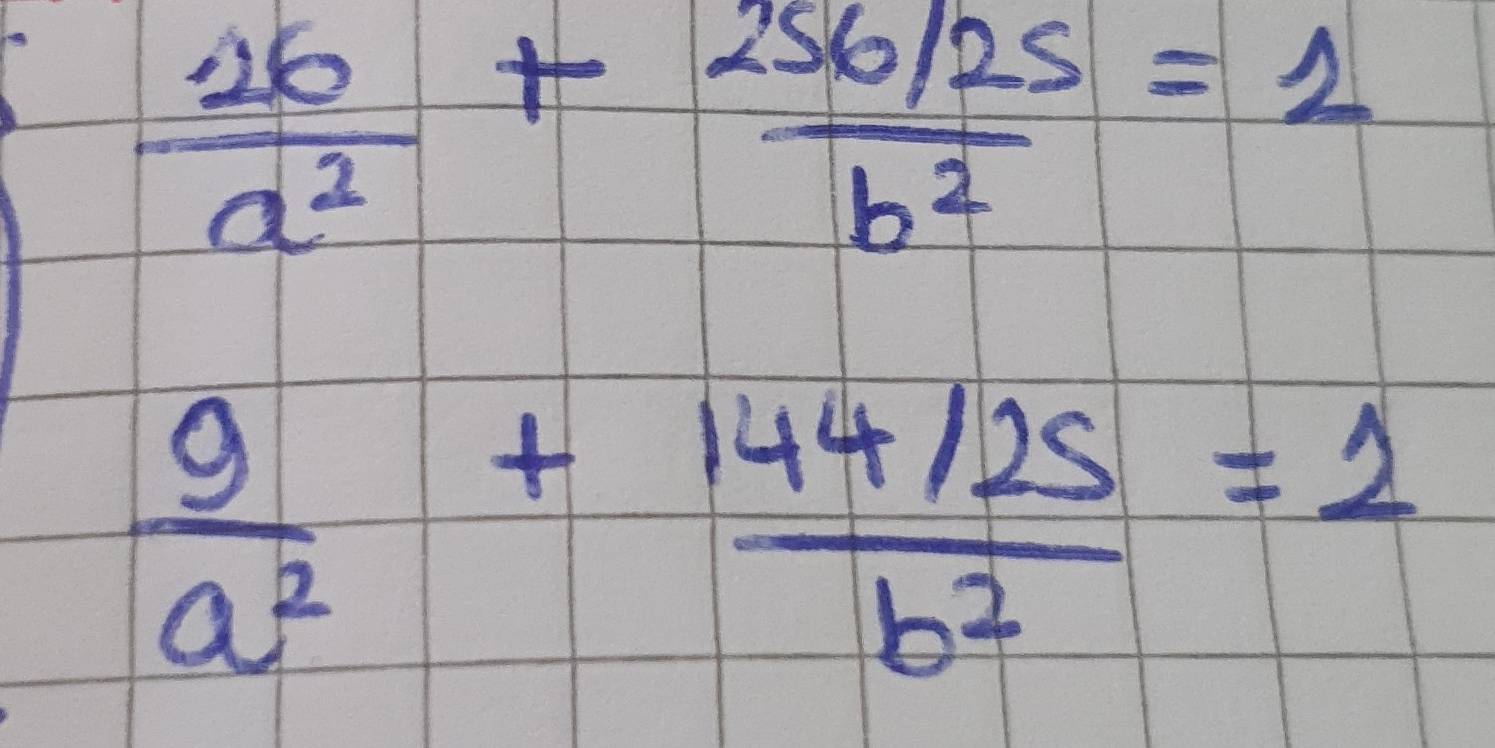 16/a² + (256/25)/b² = 1
9/a² + (144/25)/b² = 1